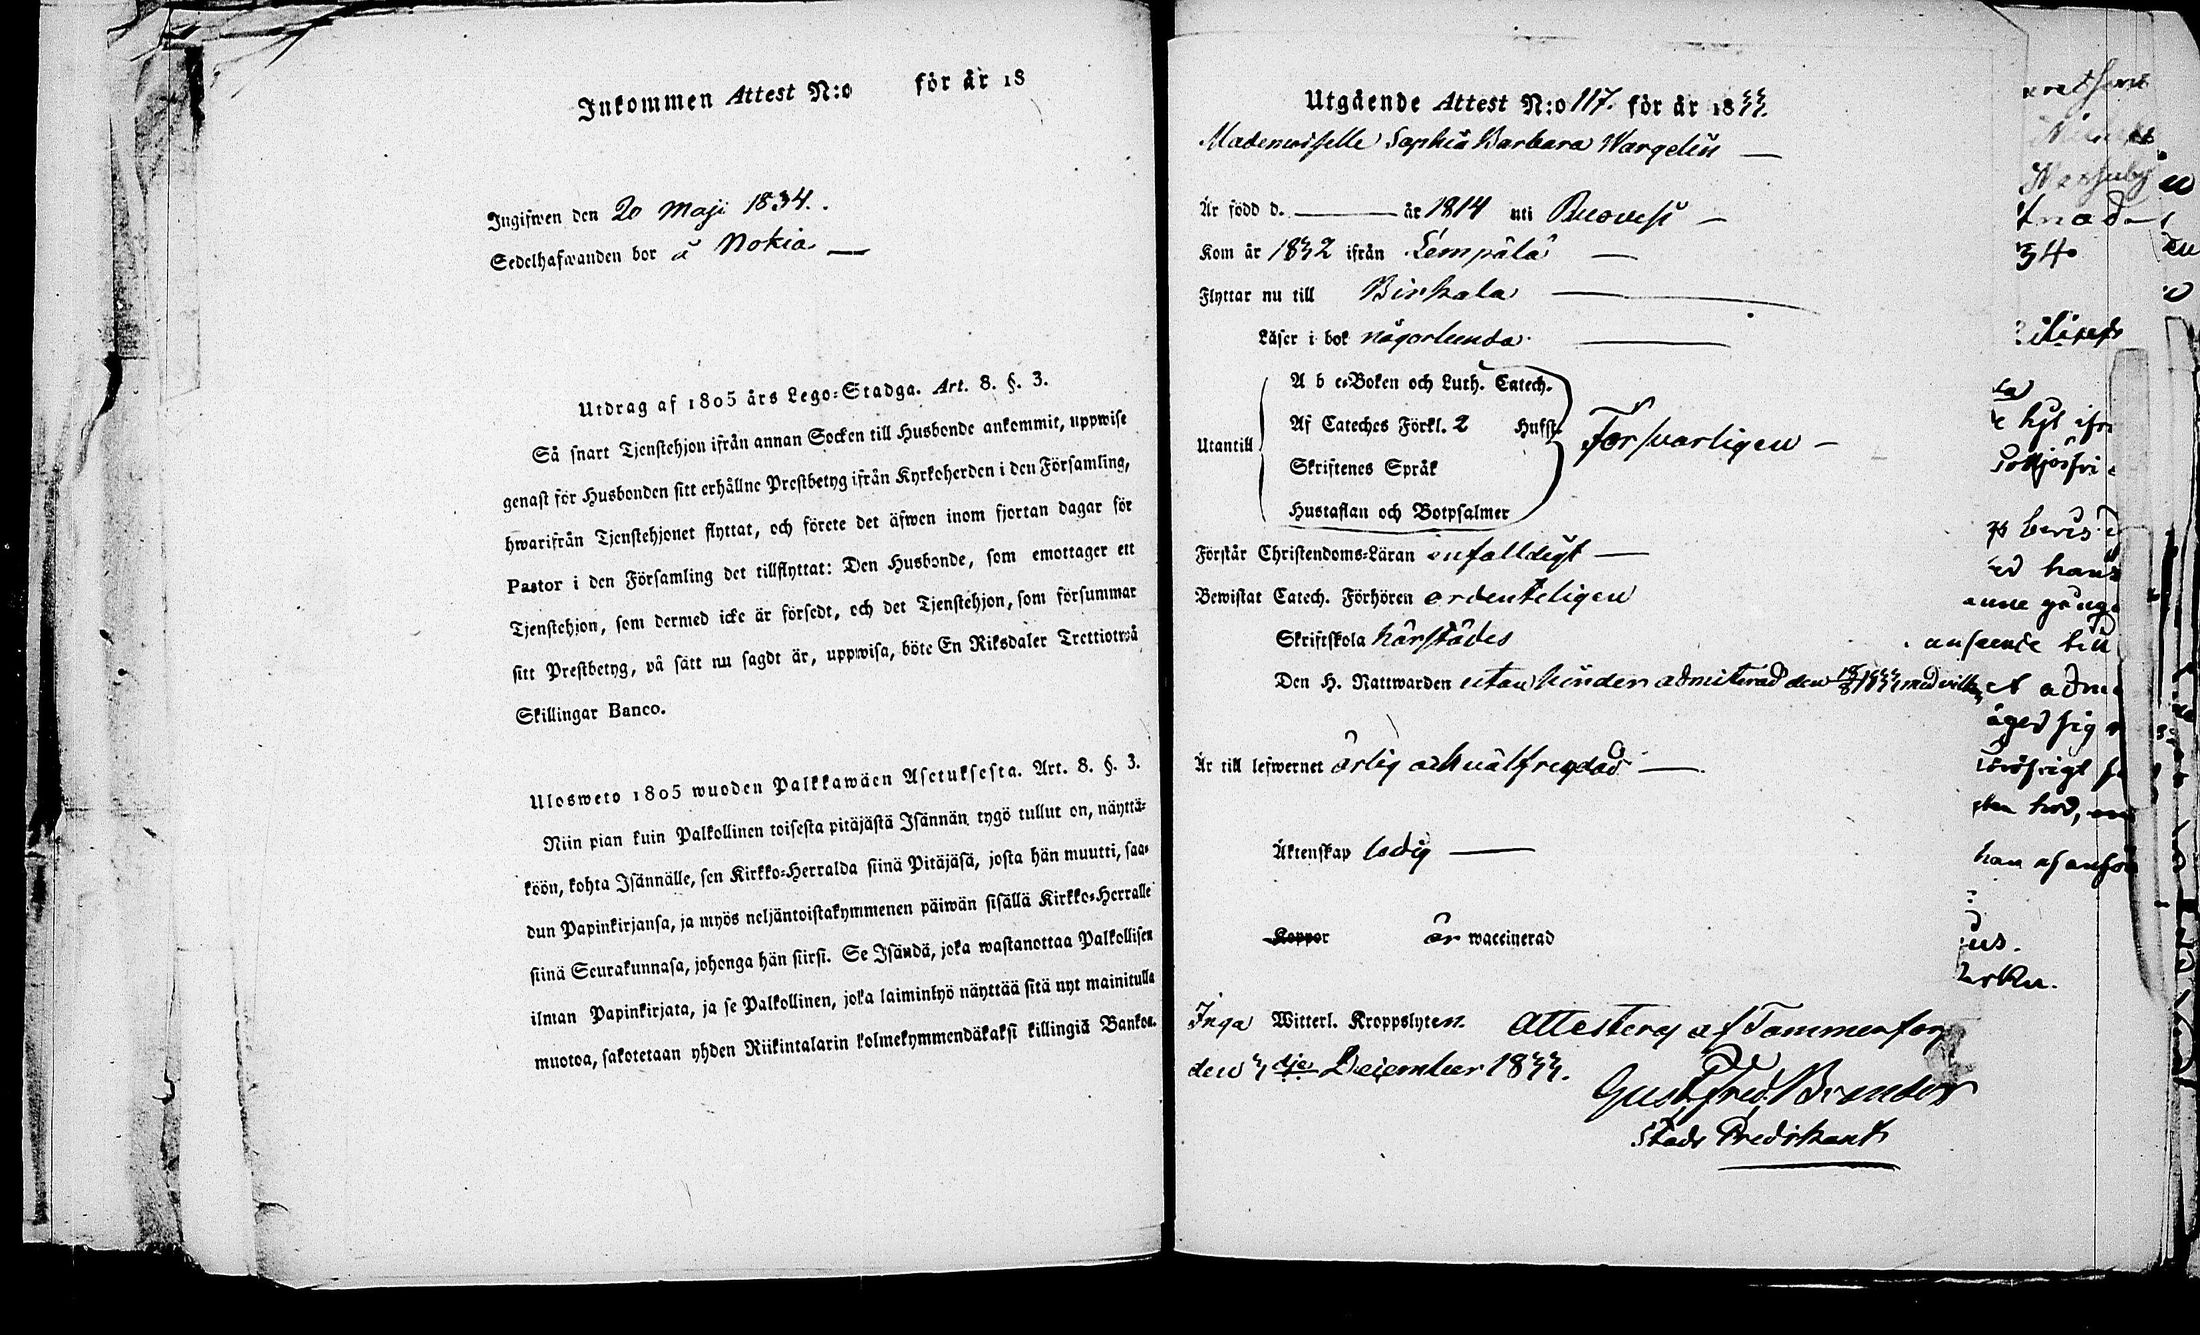 Inkommen Attest N:o för år 18
Ingifwen den 20 Maji 1834.
Sedelhafwanden bor å Nokia —
Utdrag af 1805 års Lego-Stadga. Art. 8. §. 3.
Så snart Tjenstehjon ifrån annan Socken till Husbonde ankommit, uppwise
genast för Husbonden sitt erhållne Prestbetyg ifrån Kyrkoherden i den Församling,
hwarifrån Tjenstehjonet flyttat, och förete det äfwen inom fjortan dagar för
Pastor i den Församling det tillflyttat: Den Husbonde, som emottager ett
Tjenstehjon, som dermed icke är försedt, och det Tjenstehjon, som försummar
sitt Prestbetyg, på sätt nu sagdt är, uppwisa, böte En Riksdaler Trettiotwå
Skillingar Banco.
Ulosweto 1805 wuoden Palkkawäen Asetuksesta. Art. 8. §. 3.
Niin pian kuin Palkollinen toisesta pitäjästä Isännän tygö tullut on, näyttä-
köön, kohta Isännälle, sen Kirkko-Herralda siinä Pitäjäsä, josta hän muutti, saa-
dun Papinkirjansa, ja myös neljäntoistakymmenen päiwän sisällä Kirkko-Herralle
siinä Seurakunnasa, johonga hän siirsi. Se Isändä, joka wastanottaa Palkollisen
ilman Papinkirjata, ja se Palkollinen, joka laiminlyö näyttää sitä nyt mainitulla
muotoa, sakotetaan yhden Riikintalarin kolmekymmendäkaksi killingiä Bankoa.
Utgående Attest N:o 117. för år 1833.
Mademoiselle Sophia Barbara Wargelin —
Är född d. — år 1814 uti Ruovesi —
Kom år 1832 ifrån Lempälä —
Flyttar nu till Birkala —
Läser i bok någorlunda —
A b c-Boken och Luth. Catech.
Af Cateches Förkl. 2 Hufst.
Utantill Försvarligen —
Skriftenes Språk
Hustaflan och Botpsalmer
Förstår Christendoms-Läran enfalldigt —
Bewistat Catech. Förhören ordenteligen
Skriftskola härstädes
Den H. Nattwarden utan hinder admitterad den 18/8 1833 med
Är till lefwernet ärlig och välfregdad —
Äktenskap ledig —
Koppor är waccinerad
Inga Witterl. Kroppslyten. Attesteras af Tammerfors
den 3dje December 1833.
Gust. Fred. Brander
Stads Predikant